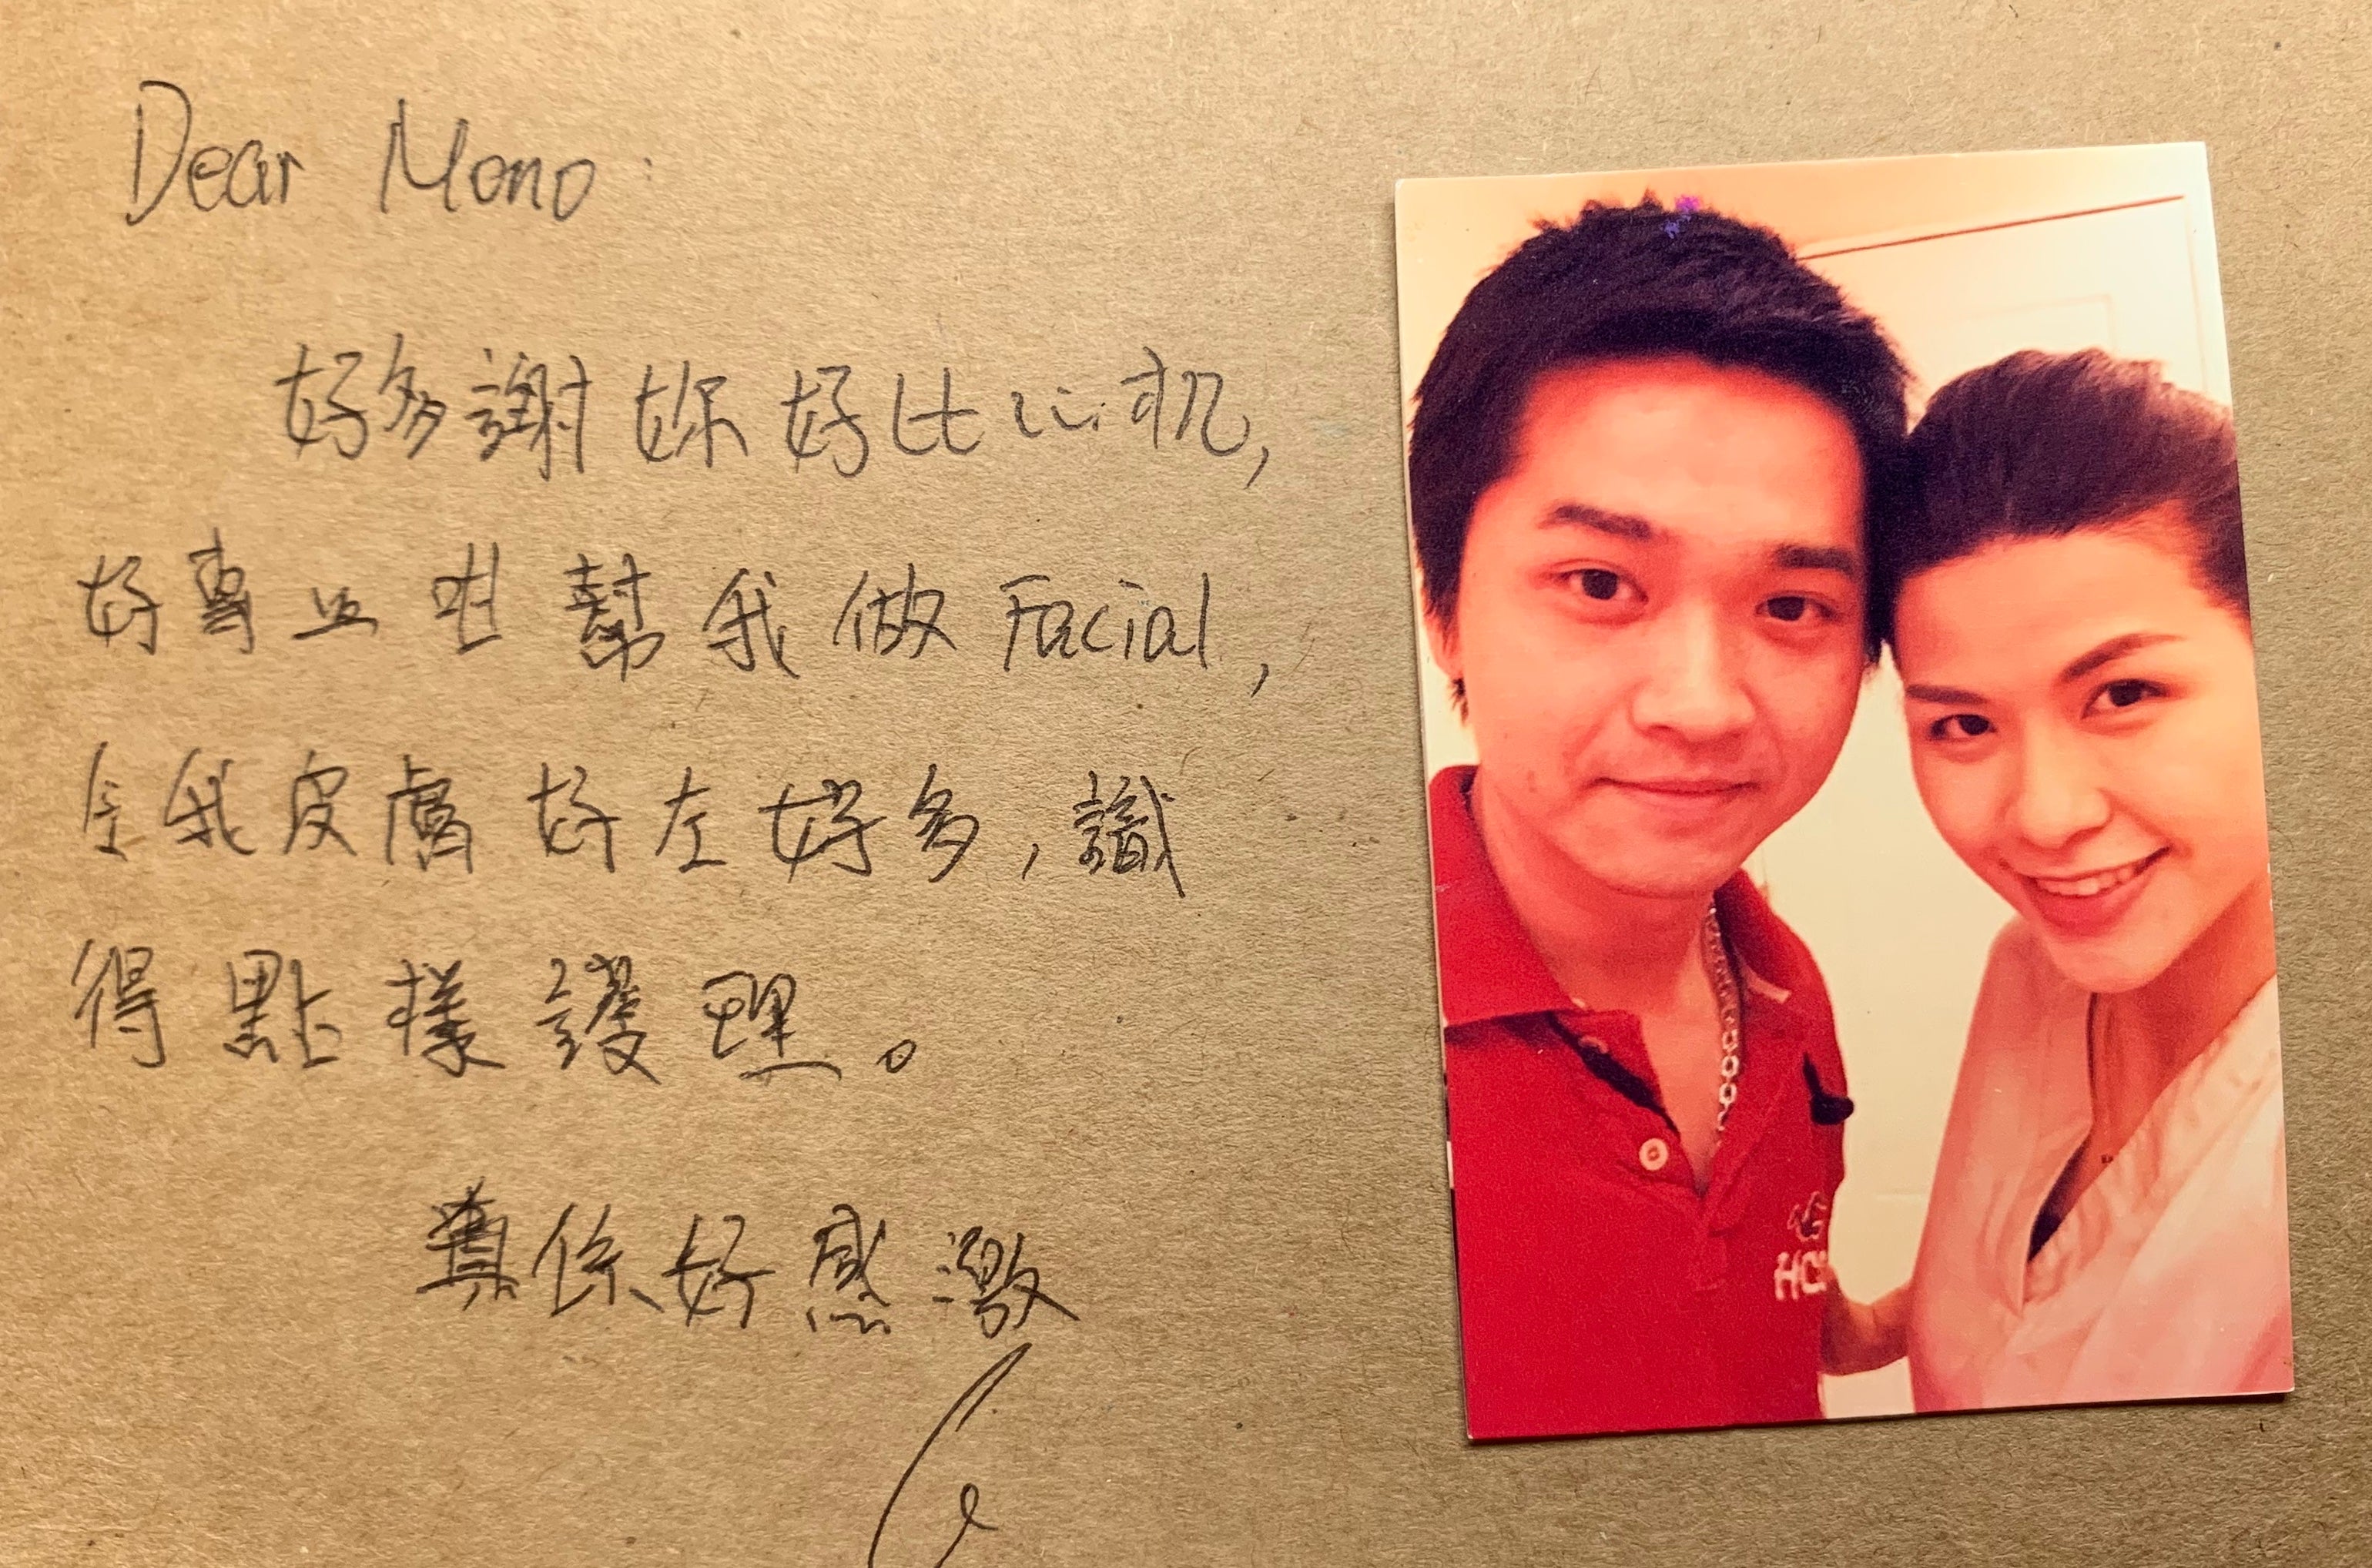 Dear Mono:
好多謝妳好比心机,
好專业咁幫我做Facial,
令我皮膚好左好多,識
得點樣護理。
真係好感激